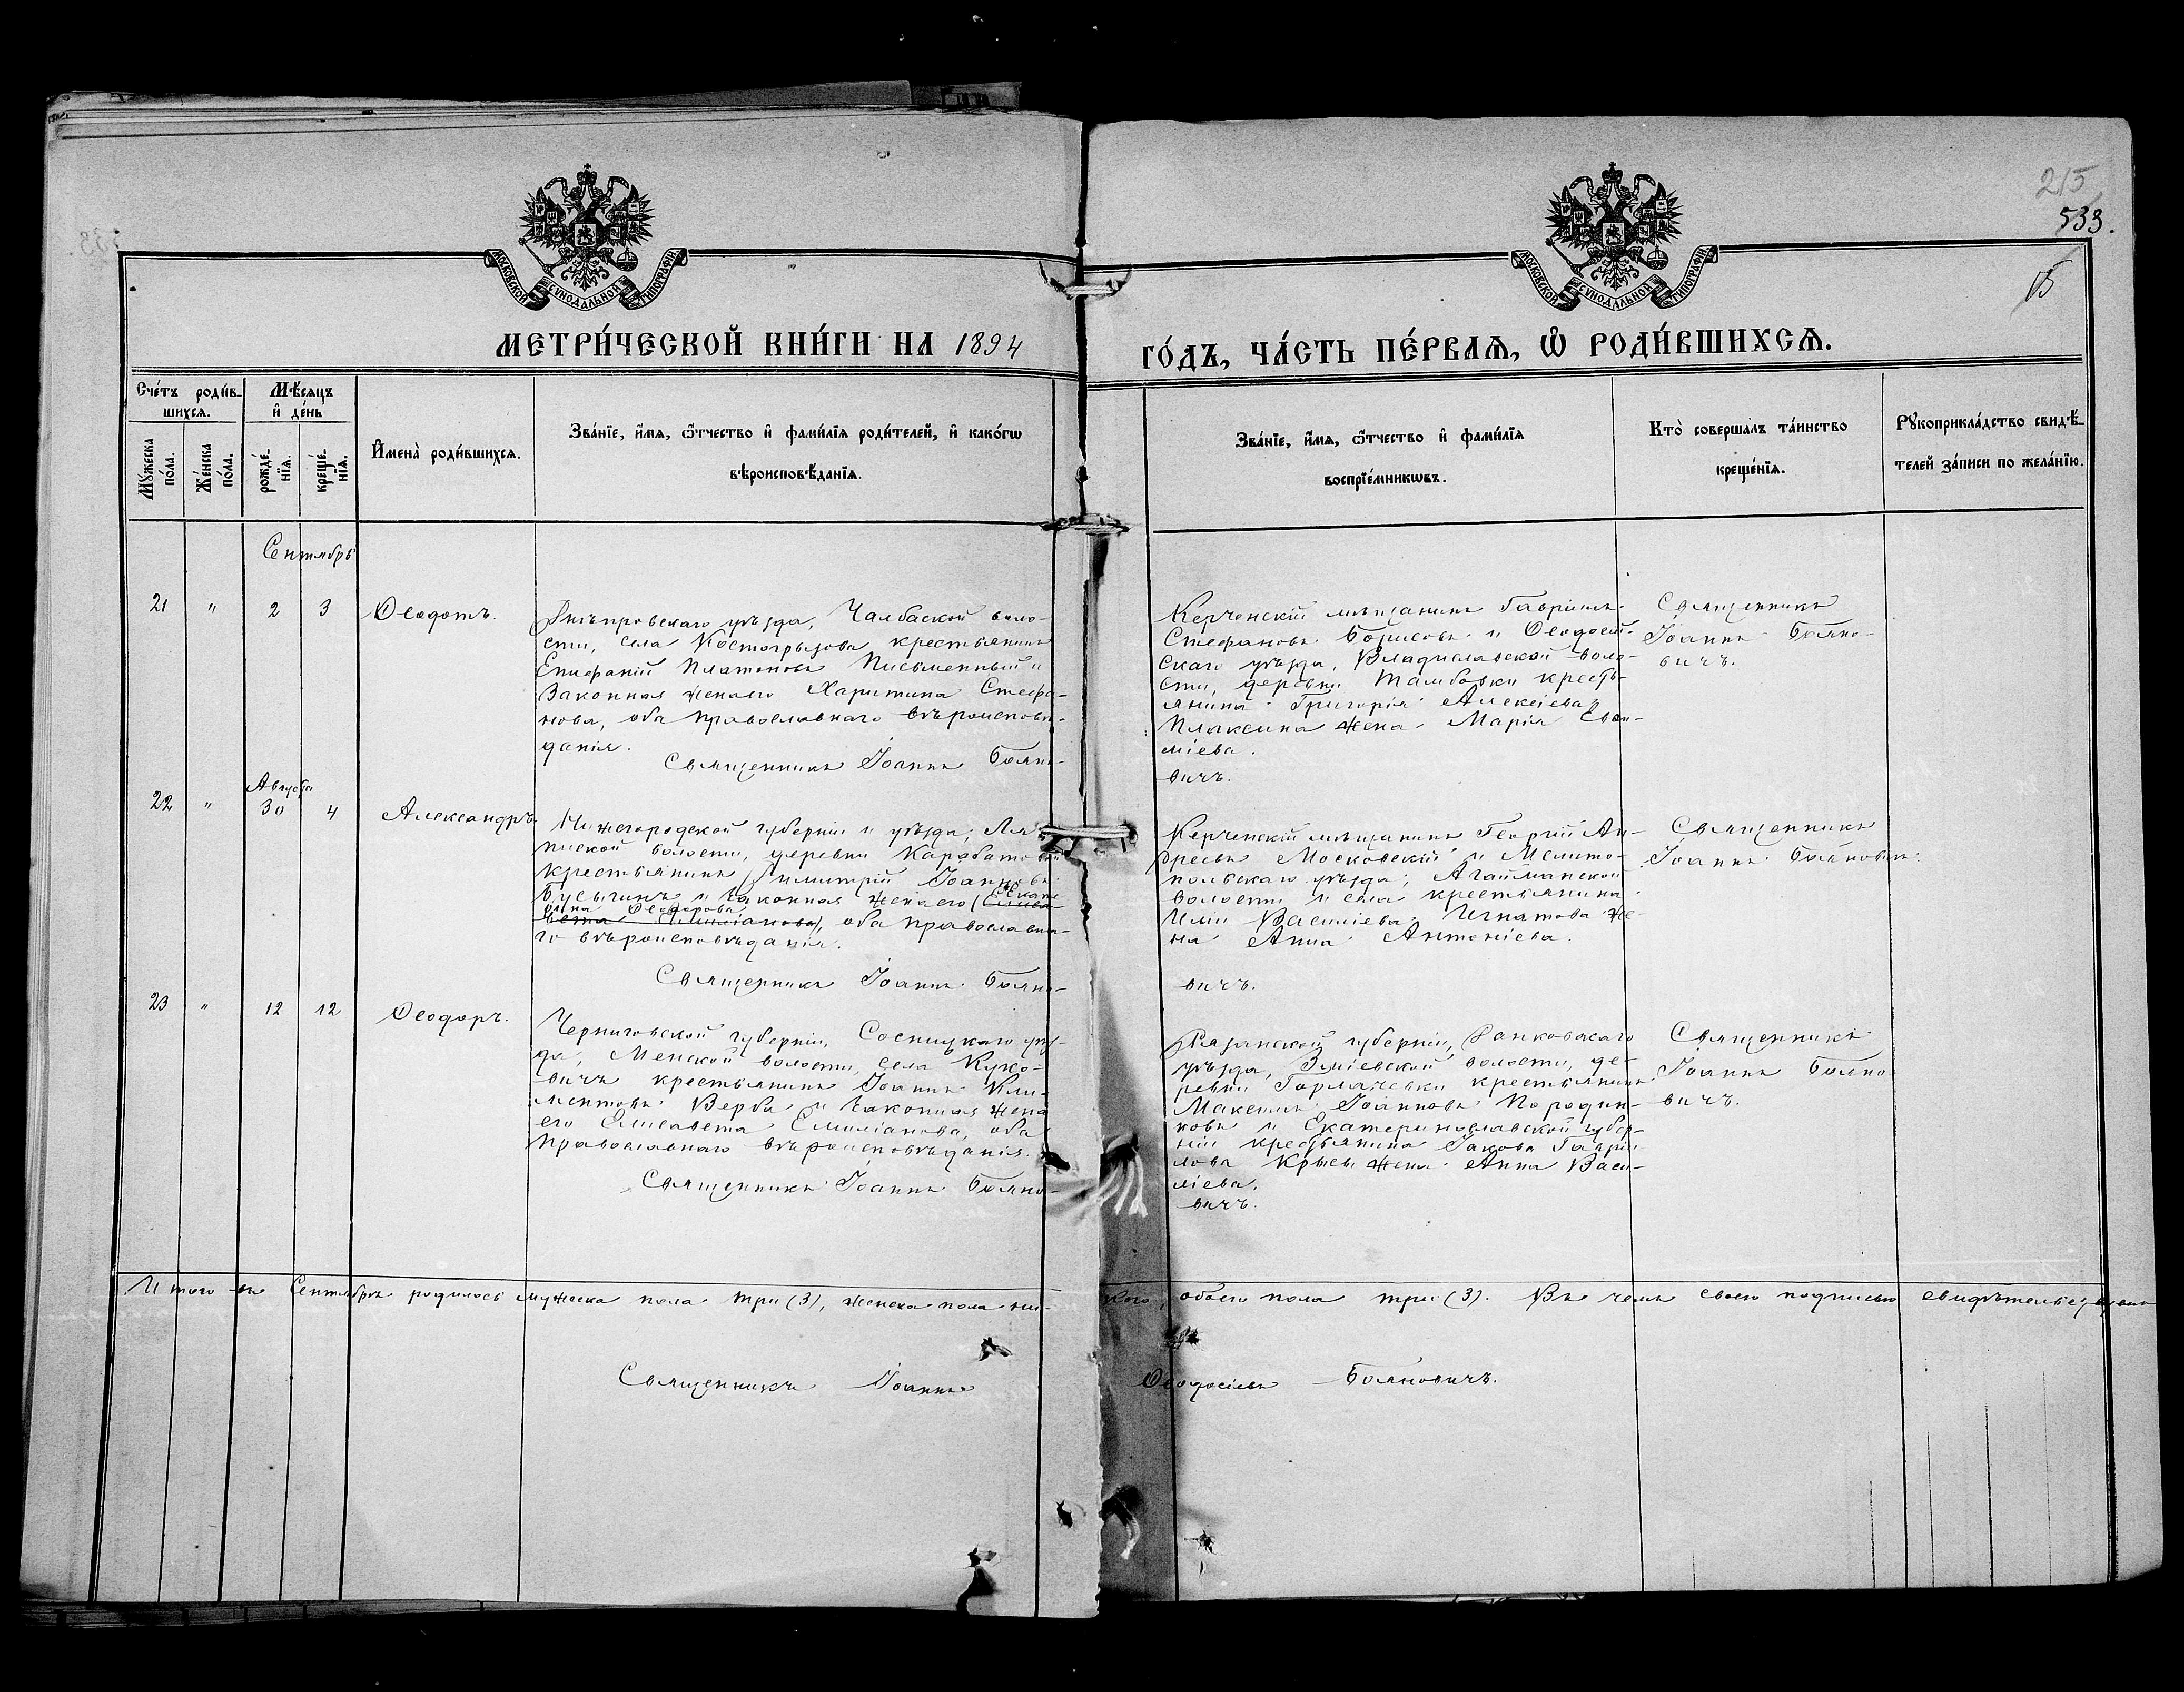 215
533.
МОСКОВСКОЙ СѴНОДАЛЬНОЙ ТИПОГРАФІИ
МОСКОВСКОЙ СѴНОДАЛЬНОЙ ТИПОГРАФІИ
МЕТРИ́ЧЕСКОЙ КНИ́ГИ НА 1894
ГО́ДЪ, ЧА́СТЬ ПЕ́РВАѦ, Ѡ҆ РОДИ́ВШИХСѦ.
Сче́тъ роди́в-
шихсѧ.
Мѣ́сѧцъ
и҆ де́нь
Мꙋ́жеска
по́ла.
Же́нска
по́ла.
рожде́-
нїѧ.
креще́-
нїѧ.
И҆мена̀ роди́вшихсѧ.
Зва́нїе, и҆́мѧ, ѻ҆́тчество и҆ фами́лїѧ роди́телей, и҆ како́гѡ
вѣроисповѣ́данїѧ.
Зва́нїе, и҆́мѧ, ѻ҆́тчество и҆ фами́лїѧ
воспрїе́мникѡвъ.
Кто̀ соверша́лъ та́инство
креще́нїѧ.
Рꙋкоприкла́дство свидѣ́-
телей за́писи по жела́нїю.
Сентябрь
21 " 2 3 Ѳеодотъ.
Днѣпровскаго уѣзда, Чалбаской воло-
сти, села Костогрызова крестьянинъ
Епифаній Платоновъ Письменный и
законная жена его Харитина Стефа-
нова, оба православнаго вѣроисповѣ-
данія.
Священникъ Іоаннъ Бояно-
Керченскій мѣщанинъ Гавріилъ
Стефановъ Борисовъ и Ѳеодосій-
скаго уѣзда, Владиславской воло-
сти, деревни Тамбовки кресть-
янина Григорія Алексіева
Плаксина жена Марія Евѳи-
міева.
вичъ.
Священникъ
Іоаннъ Бояно-
вичъ.
Августа
22 " 30 4 Александръ.
Нижегородской губерніи и уѣзда,
волости, деревни
крестьянинъ Димитрій Іоанновъ
Бусыгинъ и законная жена его (Елиса-
Ѳеодорова
вета Емиліанова), оба православна-
го вѣроисповѣданія.
Священникъ Іоаннъ Бояно-
Керченскій мѣщанинъ Георгій Ан-
дреевъ Московскій и Мелито-
польскаго уѣзда, Агайманской
волости и села крестьянина
Иліи Василіева Игнатова же-
на Анна Антоніева.
вичъ.
Священникъ
Іоаннъ Бояновичъ.
23 " 12 12 Ѳеодоръ.
Черниговской губерніи, Сосницкаго уѣз-
да, Менской волости, села Куко-
вичъ крестьянинъ Іоаннъ Кли-
ментовъ Верба и законная жена
его Елисавета Емиліанова, оба
православнаго вѣроисповѣданія.
Священникъ Іоаннъ Бояно-
Рязанской губерніи, Ранковскаго
уѣзда, Зміевской волости, де-
ревни крестьянинъ
Максимъ Іоанновъ Породин-
ковъ и Екатеринославской губер-
ніи крестьянина Іакова Гаврі-
лова жена Анна Васи-
ліева.
вичъ.
Священникъ
Іоаннъ Бояно
вичъ.
Итого въ Сентябрѣ родилось мужеска пола три (3), женска пола ни-
кого, обоего пола три (3). Въ чемъ своею подписью свидѣтельствуемъ
Священникъ Іоаннъ Ѳеодосіевъ Бояновичъ.